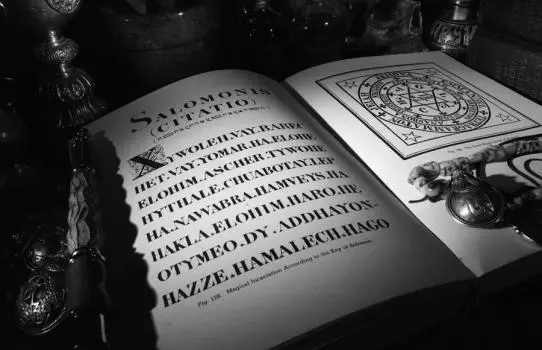 SALOMONIS
CITATIO.
XYWOLEH.VAY.BAREC
HET.VAY.YOMAR.HA.ELOHE
ELOHIM.ASCHER.TYWOHE
HYTHALE.CHUABOTAY.LEP
HA.NAVABRA.HAMVEYS.HA
HAKLA.ELOHIM.HARO.HE
OTYMEO.DY.ADDHAYON
HAZZE.HAMALECH.HAGO
Magical Incantation According to the Key of Solomon.